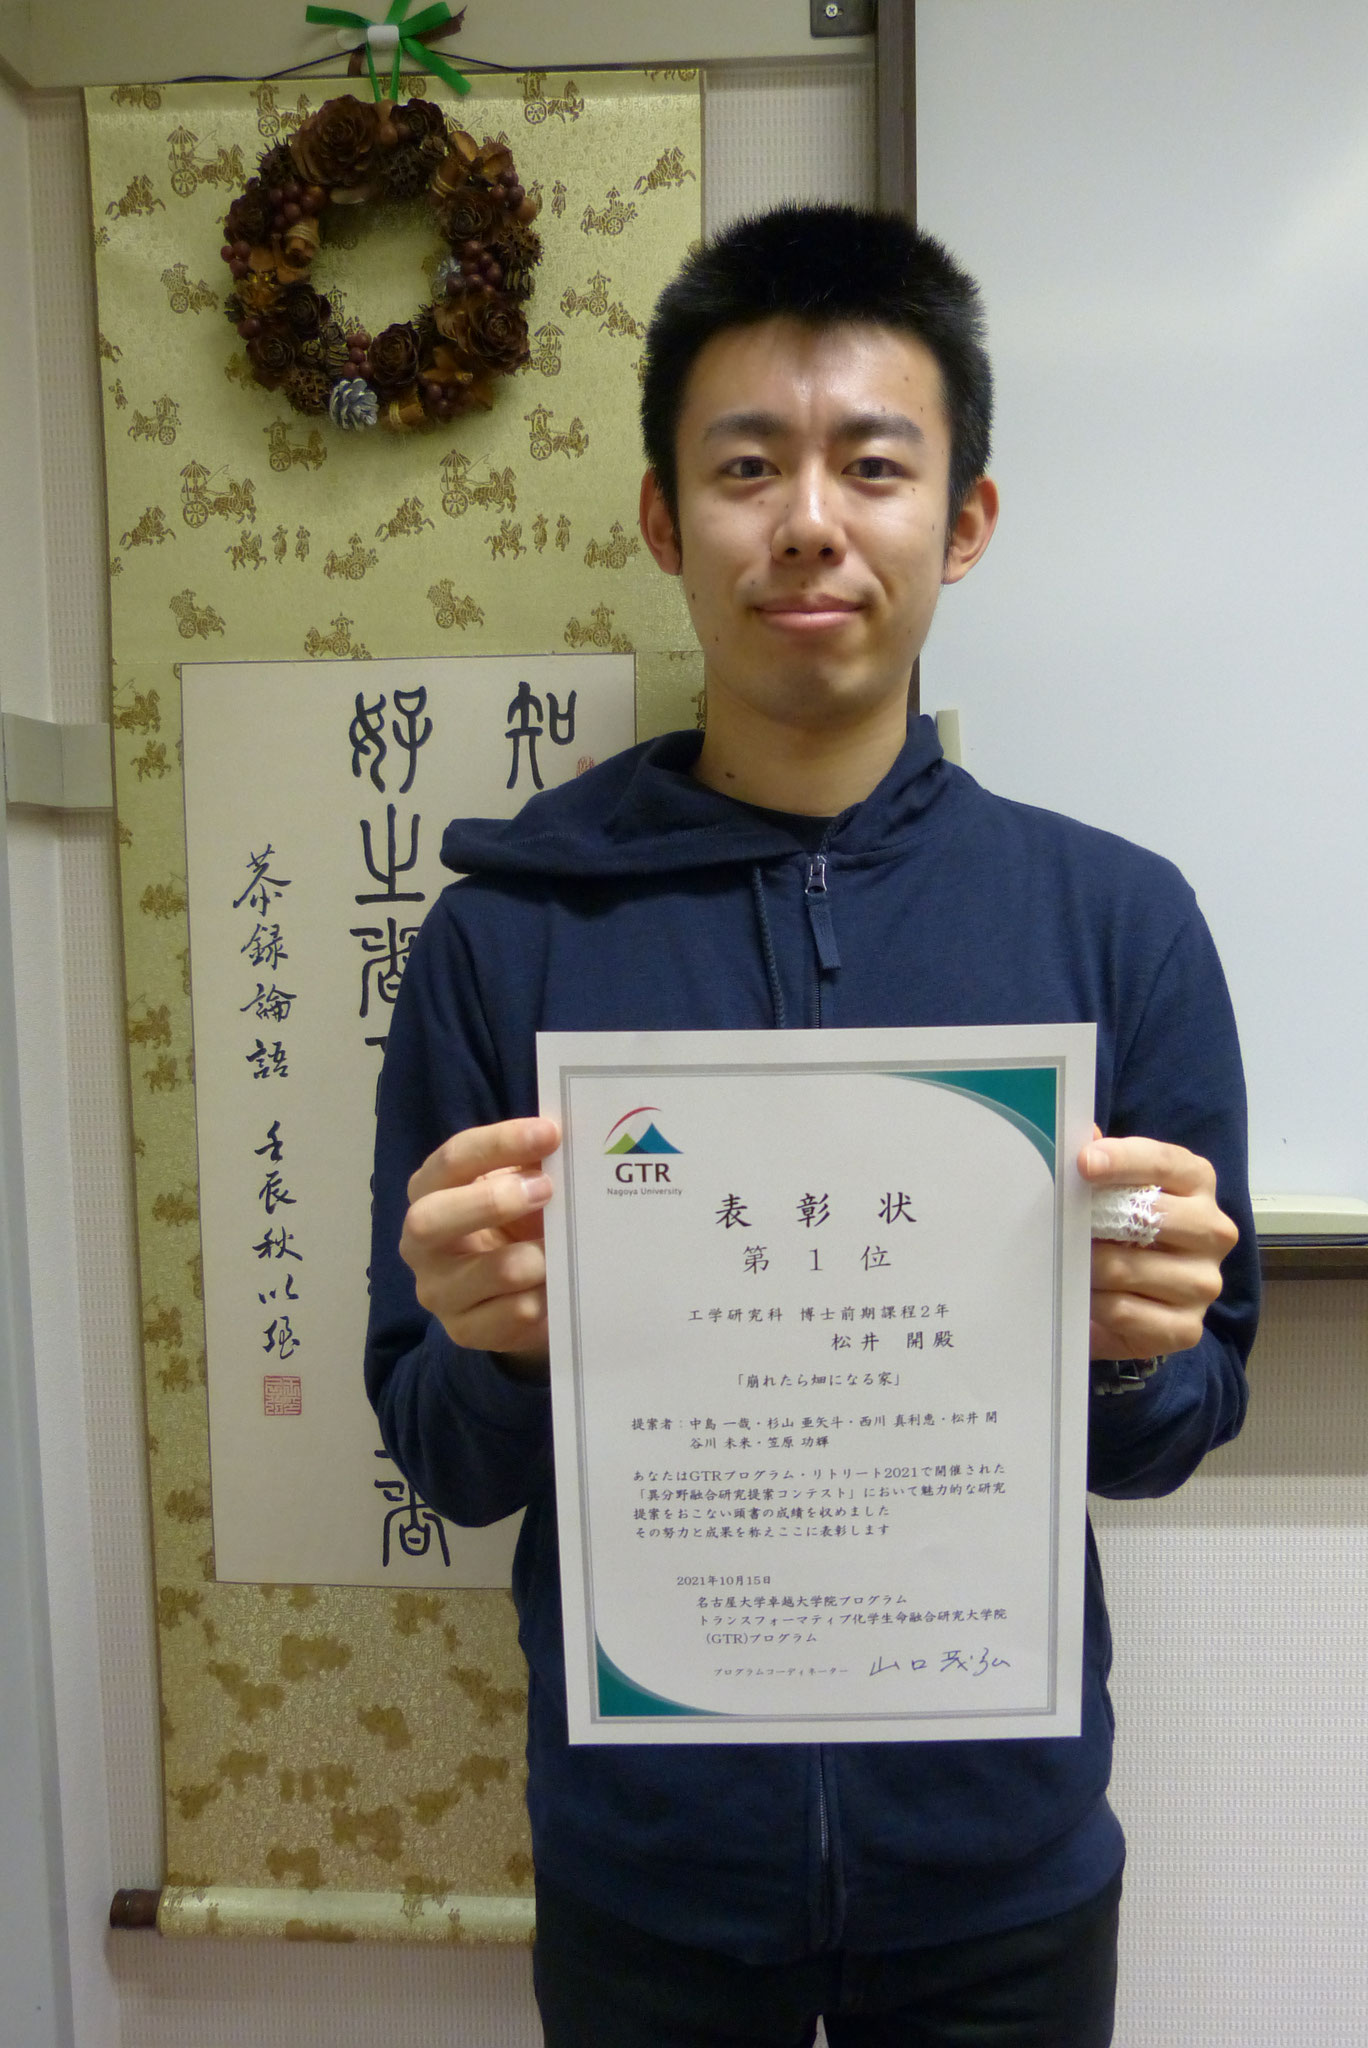 知
好之者
恭録論語 壬辰秋以
GTR
Nagoya University
表彰状
第1位
工学研究科 博士前期課程2年
松井 開殿
「崩れたら畑になる家」
提案者：中島 一哉・杉山 亜矢斗・西川 真利恵・松井 開
谷川 未来・笠原 功輝
あなたはGTRプログラム・リトリート2021で開催された
「異分野融合研究提案コンテスト」において魅力的な研究
提案をおこない頭書の成績を収めました
その努力と成果を称えここに表彰します
2021年10月15日
名古屋大学卓越大学院プログラム
トランスフォーマティブ化学生命融合研究大学院
(GTR)プログラム
プログラムコーディネーター 山口茂弘